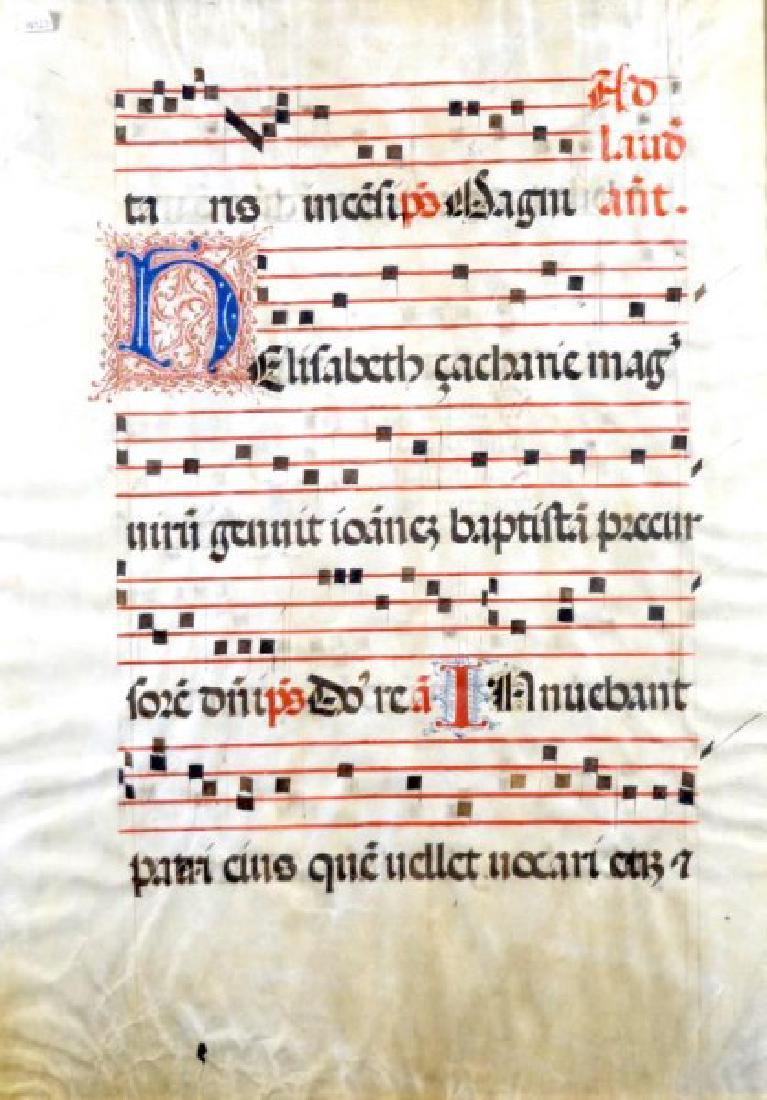 Ad
laud̄
ta ris incēsi p̄s Magni ant̄.
Elisabeth çacharie mag
uirū genuit ioānez baptistā precur
sorē dn̄i p̄s Do re ā Innuebant
patri eius quē uellet uocari